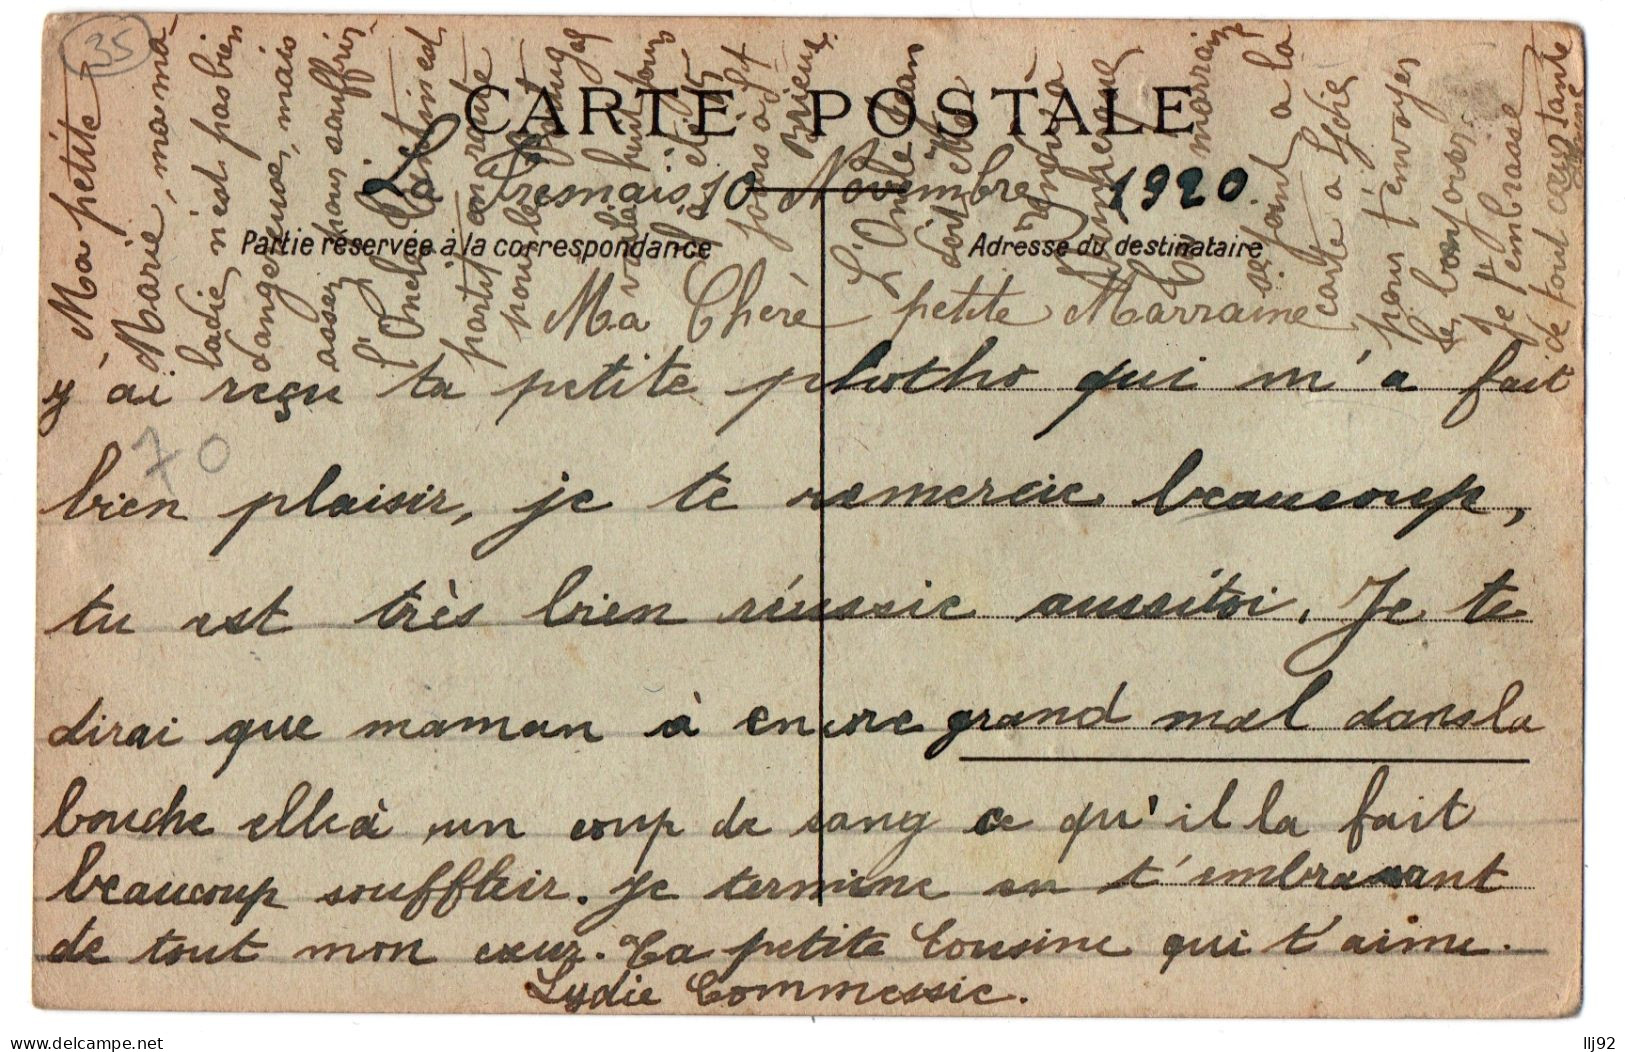 35
CARTE POSTALE
La Fresnais, 10 Novembre 1920.
Partie réservée à la correspondance
Adresse du destinataire
Ma Chère petite Marraine
y'ai reçu ta petite photho qui m'a fait
bien plaisir, je te remercie beaucoup,
70
tu est très bien réussie aussitoi. Je te
dirai que maman à encore grand mal dans la
bouche elle à un coup de sang ce qu'il la fait
beaucoup souffleir. Je termine en t'embrassant
de tout mon cœur. Ta petite Cousine qui t'aime.
Lydie Commessie.
Ma petite
Marie, ma ma-
ladie n'est pas bien
dangereuse, mais
assez pour souffrir
l'Oncle
partit en route
pour le
voilà huit jours
jours à St
Brieuc.
L'Oncle Jean
doit
ta marraine
se joint a la
carte a Lydie
pour t'envoyer
le bonjour
Je t'embrasse
de tout cœur tante
llj92